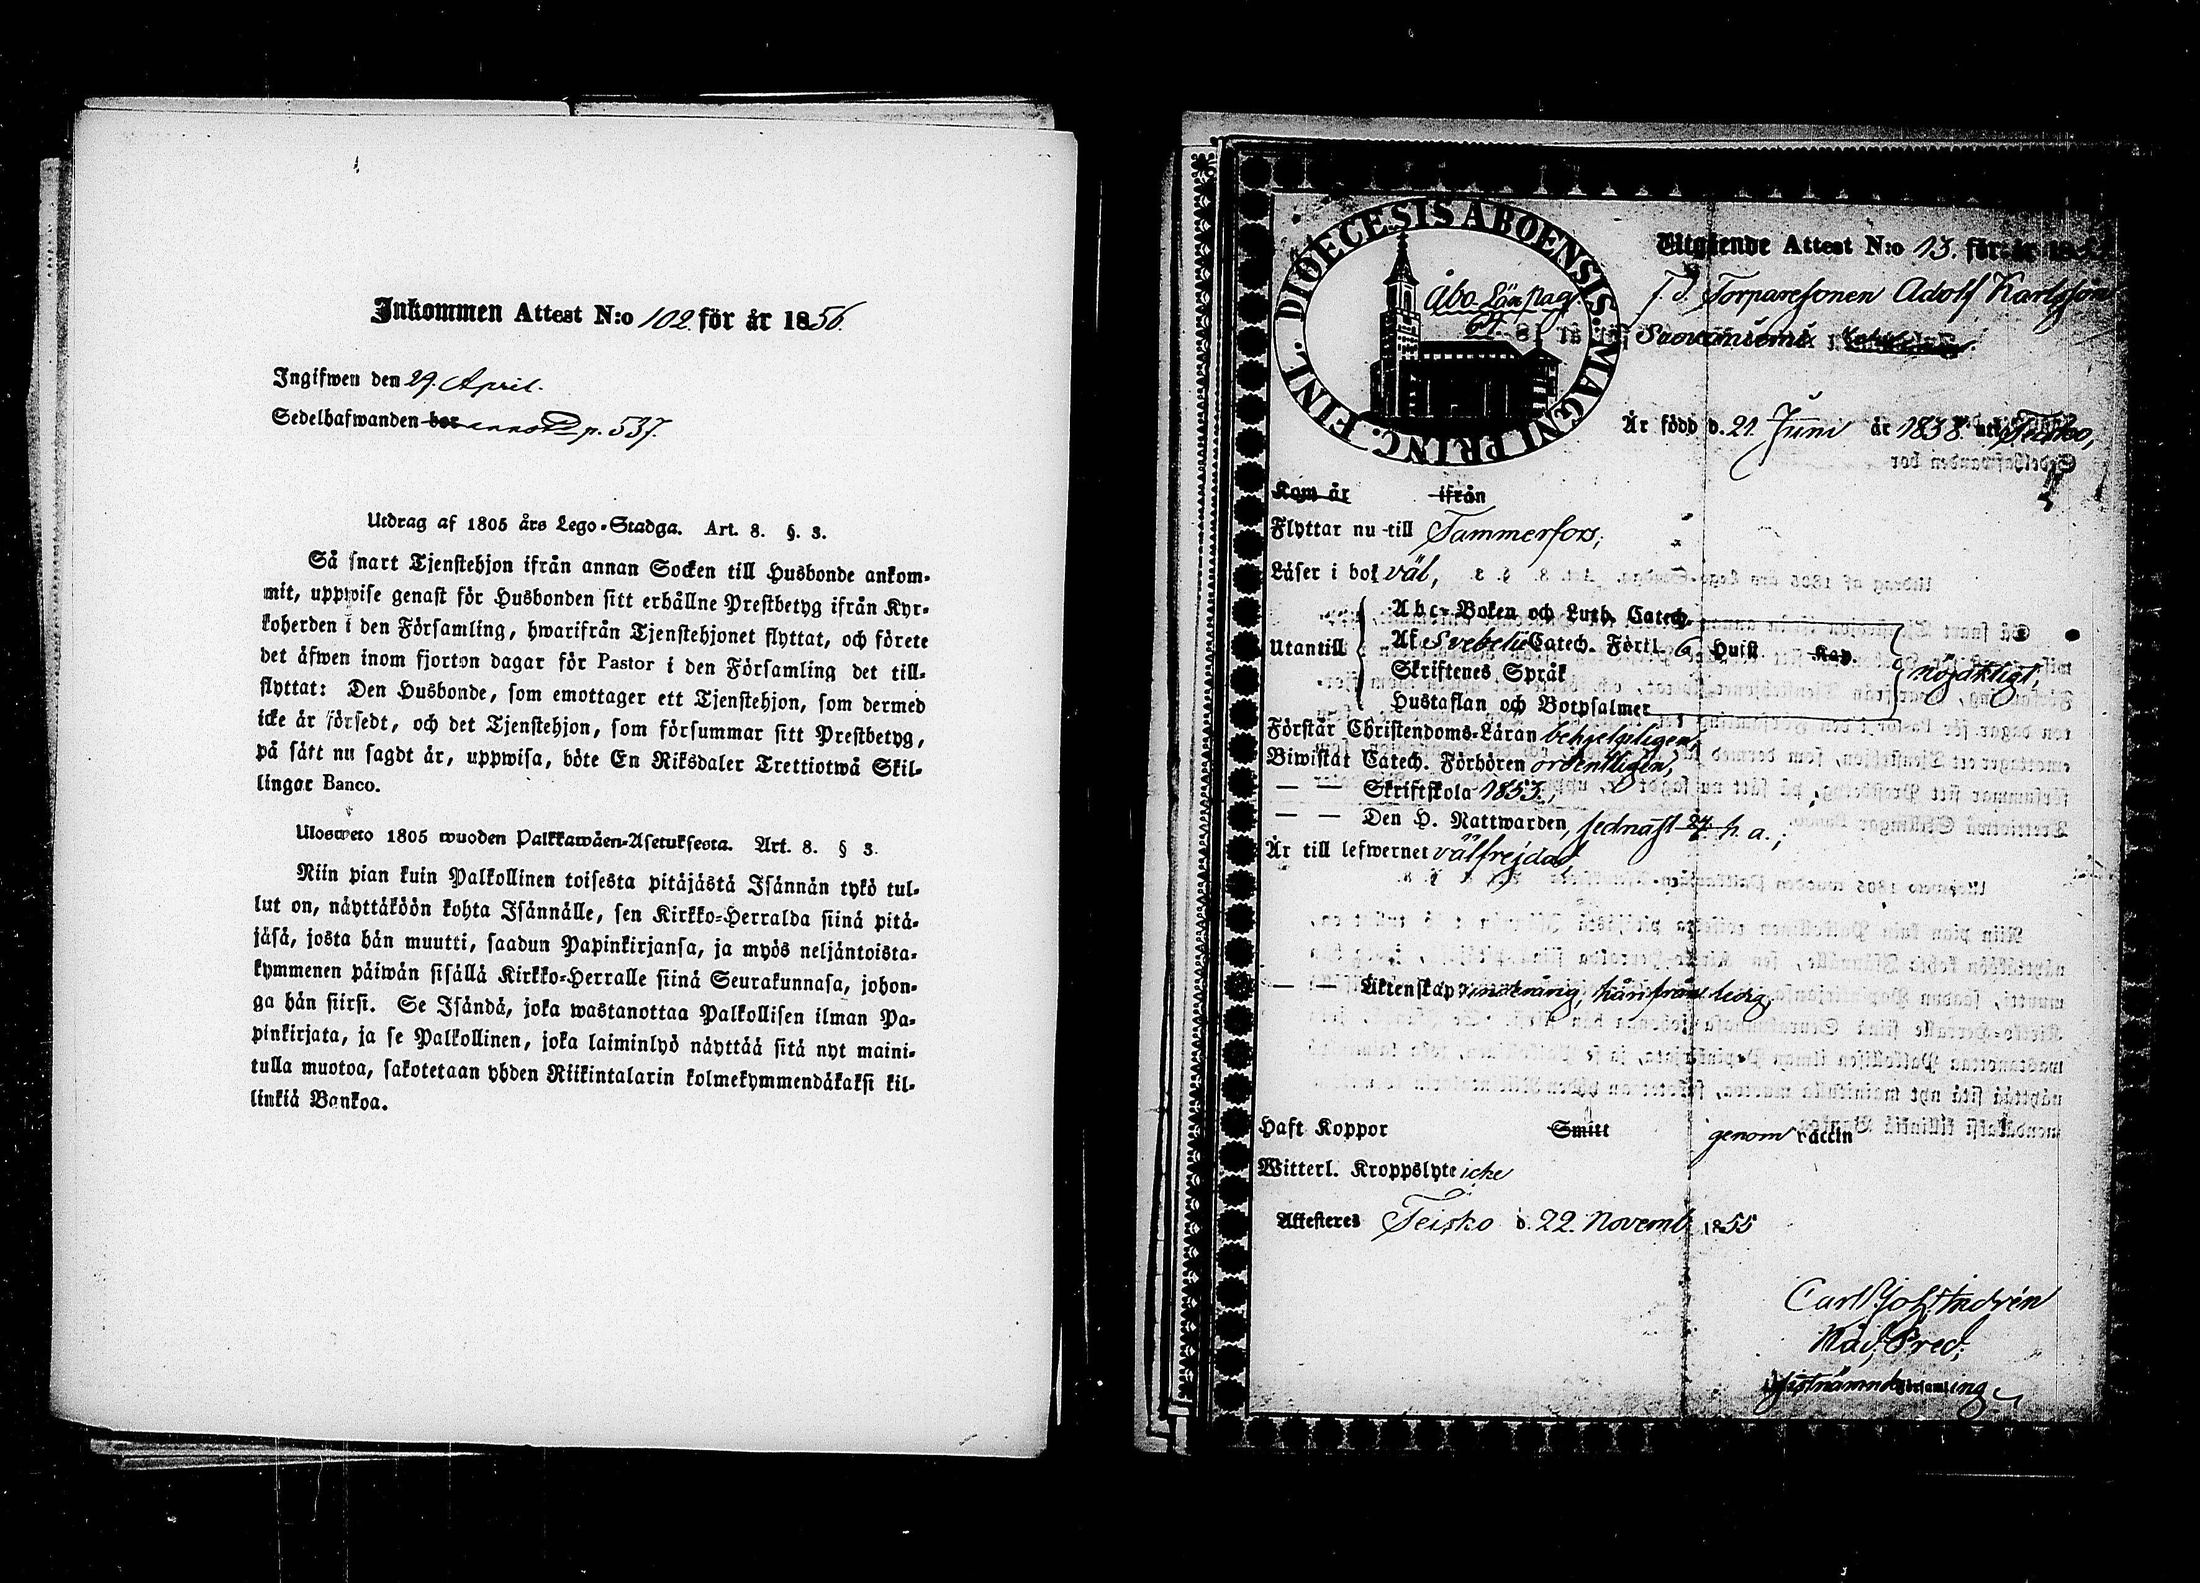 Inkommen Attest N:o 102 för år 1856.
Ingifwen den 29. April.
Sedelhafwanden bor p. 537.
Utdrag af 1805 års Lego-Stadga. Art. 8. §. 3.
Så snart Tjenstehjon ifrån annan Socken till Husbonde ankom-
mit, uppwise genast för Husbonden sitt erhållne Prestbetyg ifrån Kyr-
koherden i den Församling, hwarifrån Tjenstehjonet flyttat, och förete
det äfwen inom fjorton dagar för Pastor i den Församling det till-
flyttat: Den Husbonde, som emottager ett Tjenstehjon, som dermed
icke är försedt, och det Tjenstehjon, som försummar sitt Prestbetyg,
på sätt nu sagdt är, uppwisa, böte En Riksdaler Trettiotwå Skil-
lingar Banco.
Ulosweto 1805 wuoden Palkkawäen-Asetuksesta. Art. 8. § 3.
Niin pian kuin Palkollinen toisesta pitäjästä Isännän tykö tul-
lut on, näyttäköön kohta Isännälle, sen Kirkko-Herralda siinä pitä-
jäsä, josta hän muutti, saadun Papinkirjansa, ja myös neljäntoista-
kymmenen päiwän sisällä Kirkko-Herralle siinä Seurakunnasa, johon-
ga hän siirsi. Se Isändä, joka wastanottaa Palkollisen ilman Pa-
pinkirjata, ja se Palkollinen, joka laiminlyö näyttää sitä nyt maini-
tulla muotoa, sakotetaan yhden Riikintalarin kolmekymmendäkaksi kil-
linkiä Bankoa.
DIOECESIS ABOENSIS. MAGNI PRINC. FINL.
Åbo-Län
Utgående Attest N:o 13. för år 18
f. d. Torparesonen Adolf Karlsson
Är född d. 21 Juni år 1838. uti Teisko,
Kom år ifrån
Flyttar nu till Tammerfors,
Läser i bok väl,
Abc-Boken och Luth. Catech.
Utantill Af Svebelii Catech. Förkl. 6 Hufst Kap. nöjaktigt,
Skriftenes Språk
Hustaflan och Botpsalmer
Förstår Christendoms-Läran behjelpligen,
Biwistat Catech. Förhören ordentligen,
— — Skriftskola 1853.,
— — Den H. Nattwarden, sednast h. a.;
Är till lefwernet välfrejdad
— — Äktenskap härifrån ledig,
Haft Koppor Smitt genom vaccin
Witterl. Kroppslyte icke
Attesteres Teisko d. 22. Novemb. 1855
Carl Joh. Andrén
Pred.